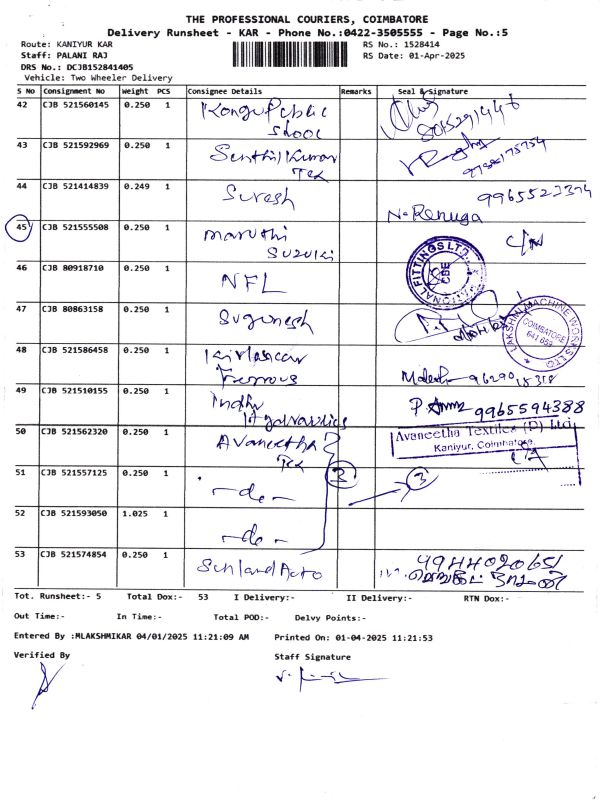 THE PROFESSIONAL COURIERS, COIMBATORE
Delivery Runsheet - KAR - Phone No.:0422-3505555 - Page No.:5
Route: KANIYUR KAR
RS No.: 1528414
Staff: PALANI RAJ
RS Date: 01-Apr-2025
DRS No.: DCJB152841405
Vehicle: Two Wheeler Delivery
S No Consignment No Weight PCS Consignee Details Remarks Seal & Signature
42 CJB 521560145 0.250 1 Kongu Public
Shool
43 CJB 521592969 0.250 1 Senthil Kumar
Tex
9786175754
44 CJB 521414839 0.249 1 Suresh
N. Renuga
45 CJB 521555508 0.250 1 maruthi
Suzuki
46 CJB 80918710 0.250 1 NFL
NATIONAL FITTINGS LTD
CBE
47 CJB 80863158 0.250 1 Sugunesh
LAKSHMI MACHINE WORKS LTD
COIMBATORE
48 CJB 521586458 0.250 1 Kirloskar
Ferrous
49 CJB 521510155 0.250 1 Indhu
9965594388
50 CJB 521562320 0.250 1 Avaneetha
Tex
Avaneetha Textiles (P) Ltd
Kaniyur, Coimbatore.
51 CJB 521557125 0.250 1 -do-
3 3
52 CJB 521593050 1.025 1 -do-
53 CJB 521574854 0.250 1 Sunland Auto
9944020651
Tot. Runsheet:- 5 Total Dox:- 53 I Delivery:- II Delivery:- RTN Dox:-
Out Time:- In Time:- Total POD:- Delvy Points:-
Entered By :MLAKSHMIKAR 04/01/2025 11:21:09 AM Printed On: 01-04-2025 11:21:53
Verified By Staff Signature